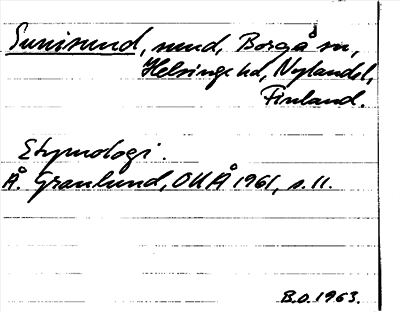 Sunisund, sund, Borgå sn,
Helsinge hd, Nylands l,
Finland.
Etymologi.
Å. Granlund, OUÅ 1961, s. 11.
B.O. 1963.